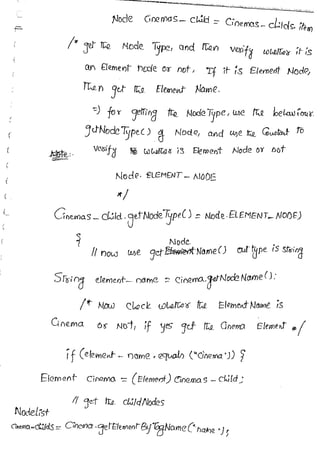 Node Cinemas_child = Cinemas_childs.item
/* get the Node Type, and then verify whether it is
an Element node or not, If it is Element Node,
Then get the Element Name.
=> for getting the NodeType, use the behaviour
getNodeType() of Node, and use the Constant to
Note:- verify whether is Element Node or not
Node. ELEMENT_NODE
*/
Cinemas_child.getNodeType() = Node.ELEMENT_NODE)
{
// now use get Node Name() out type is String
String element_name = Cinema.getNodeName():
/* Now Check whether the Element Name is
Cinema or Not, if yes get the Cinema Element */
if (element_name.equals ("Cinema")) {
Element Cinema = (Element) Cinemas_child;
// get the childNodes
Nodelist
Cinema_childs = Cinema.getElementByTagName("name");